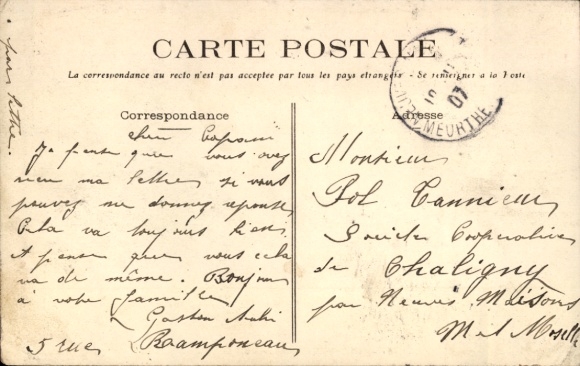 CARTE POSTALE
La correspondance au recto n'est pas acceptée par tous les pays étrangers - Se renseigner à la Poste
Correspondance
cher
Je pense que vous avez
ma lettre si vous
pouvez me donnez réponse
Cela va toujours bien
pense que vous cela
va de même. Bonjour
à votre famille
Gaston
5 rue Ramponeau
par lettre.
Adresse
Monsieur
Pol
Société Coopérative
de Chaligny
par Neuves Maisons
M et Moselle
07
MEURTHE